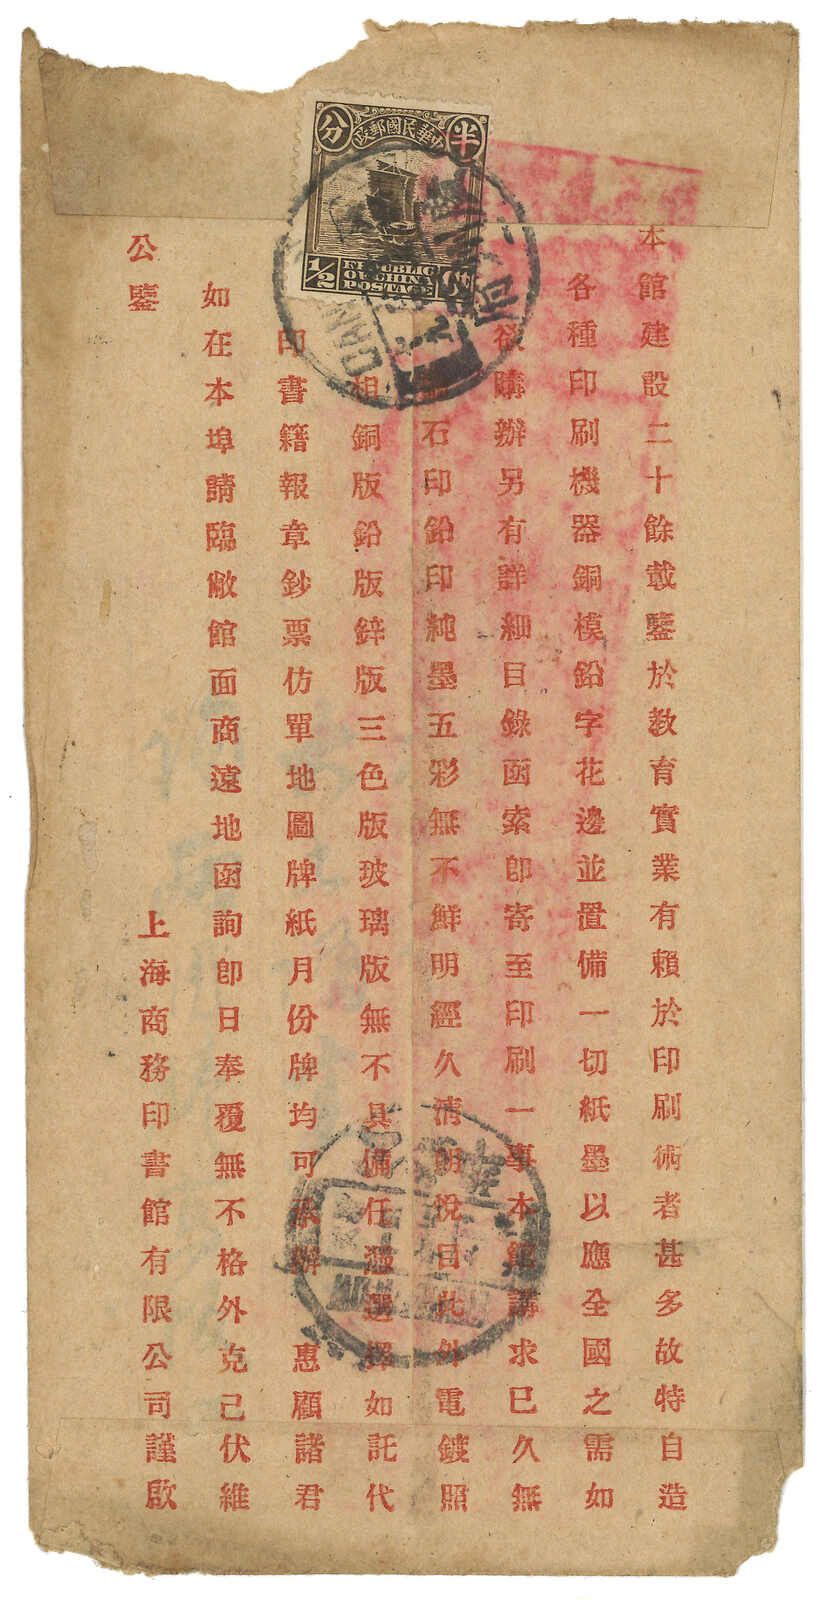 本館建設二十餘載鑒於教育實業有賴於印刷術者甚多故特自造
各種印刷機器銅模鉛字花邊並置備一切紙墨以應全國之需如
欲購辦另有詳細目錄函索即寄至印刷一事本館講求已久無
石印鉛印純墨五彩無不鮮明經久清朗悅目此外電鍍照
相銅版鉛版鋅版三色版玻璃版無不具備任憑選擇如託代
印書籍報章鈔票仿單地圖牌紙月份牌均可承辦 惠顧諸君
如在本埠請臨敝館面商遠地函詢即日奉覆無不格外克己伏維
公鑒
上海商務印書館有限公司謹啟
中華民國郵政
半
分
1/2
REPUBLIC
OF CHINA
POSTAGE